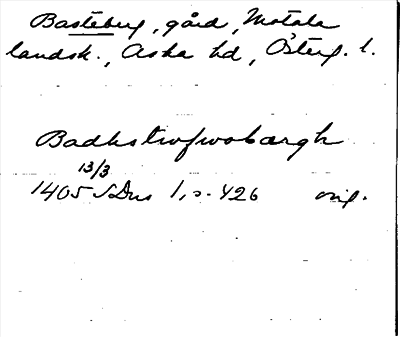 Basteberg, gård, Motala
landsk., Aska hd, Österg. l.
Badhstwfwobærgh
13/3
1405 SDns 1, s. 426 orig.